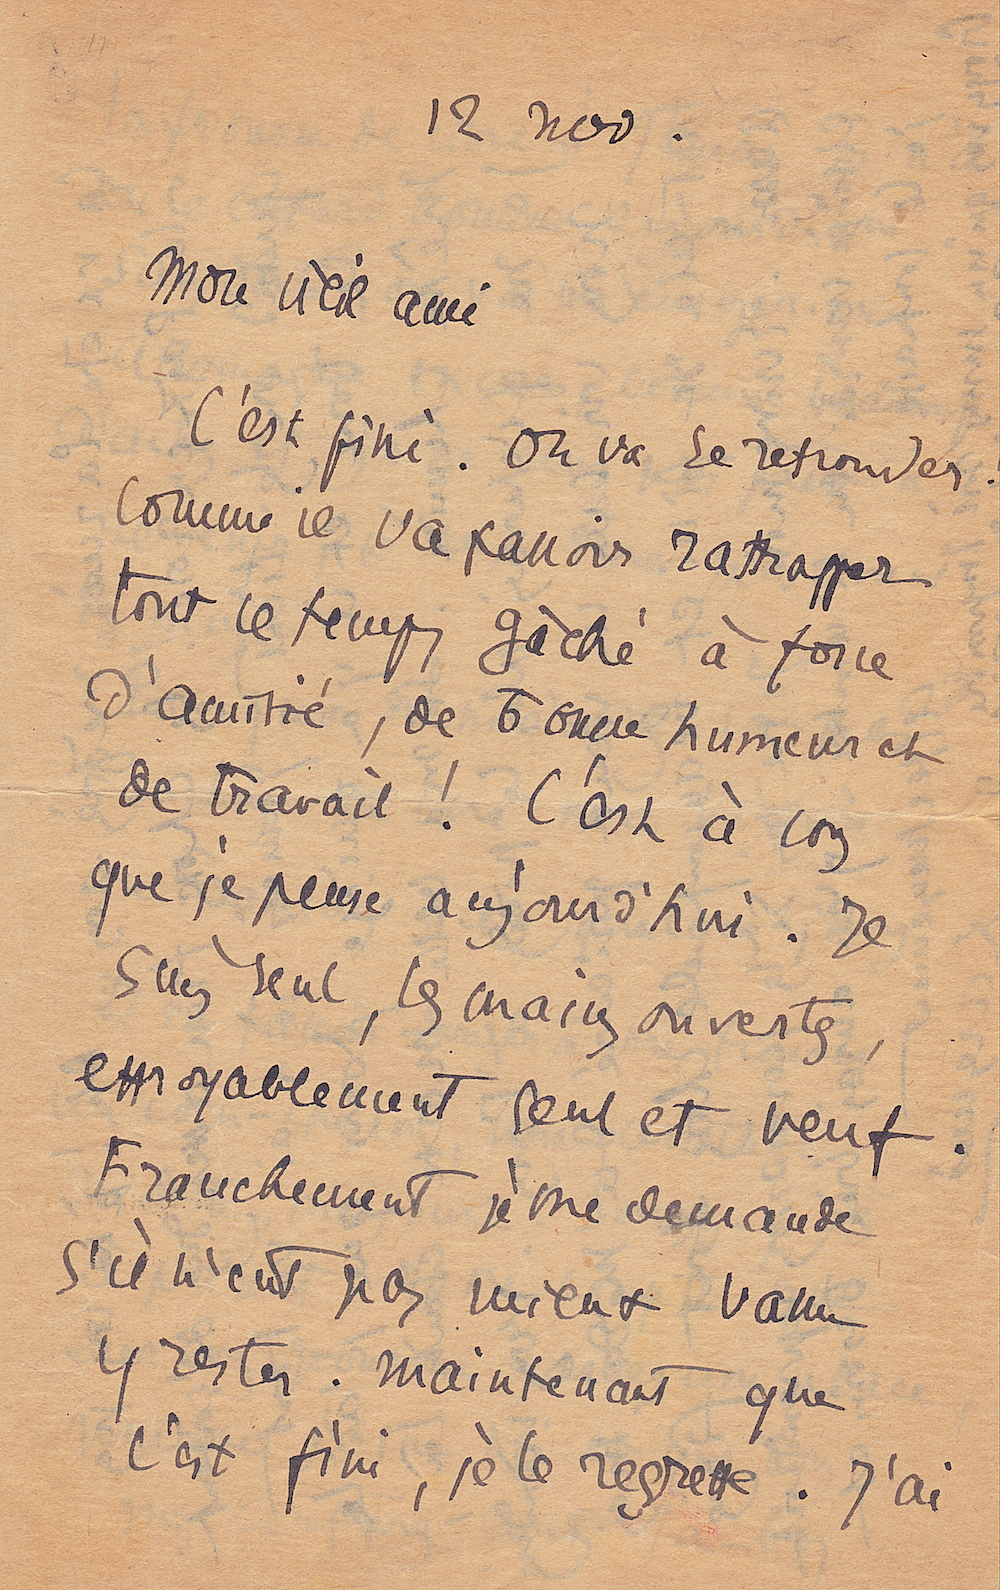 12 nov.
Mon vieil ami
C'est fini. On va se retrouver!
Comme il va falloir rattrapper
tout ce temps gâché à force
d'amitié, de bonne humeur et
de travail! C'est à vous
que je pense aujourd'hui. Je
suis seul, les mains ouvertes,
effroyablement seul et veuf.
Franchement je me demande
s'il n'eut pas mieux valu
y rester. Maintenant que
c'est fini, je le regrette. J'ai